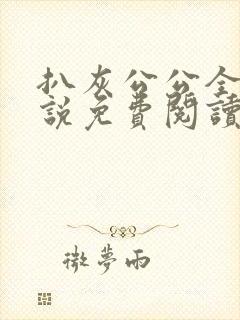 扒灰公公全
說免費閱讀
微夢雨